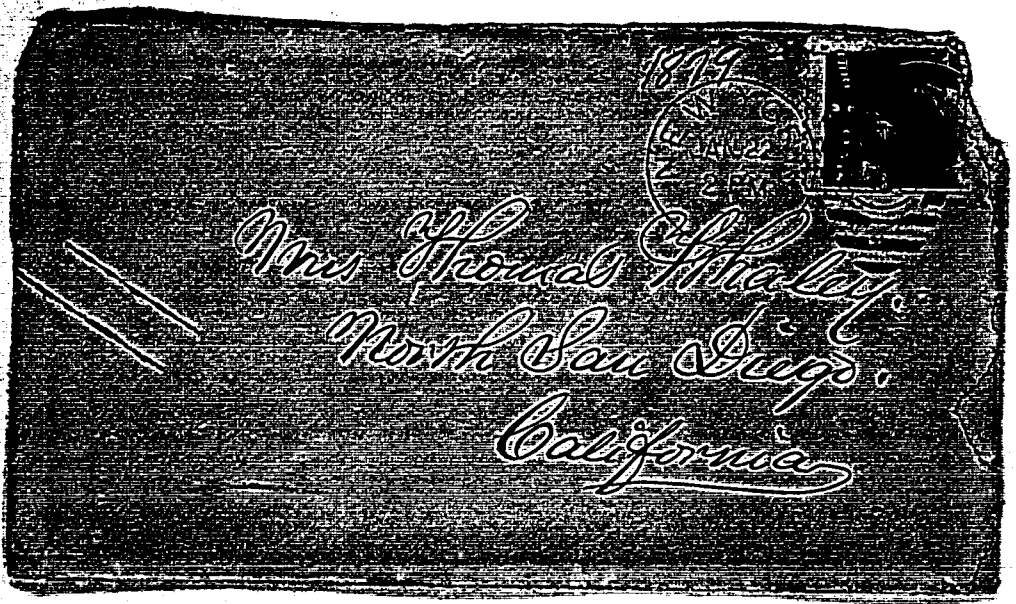 1879
NEW
JAN 22
2 PM
Mrs Thomas Whaley.
North San Diego.
California